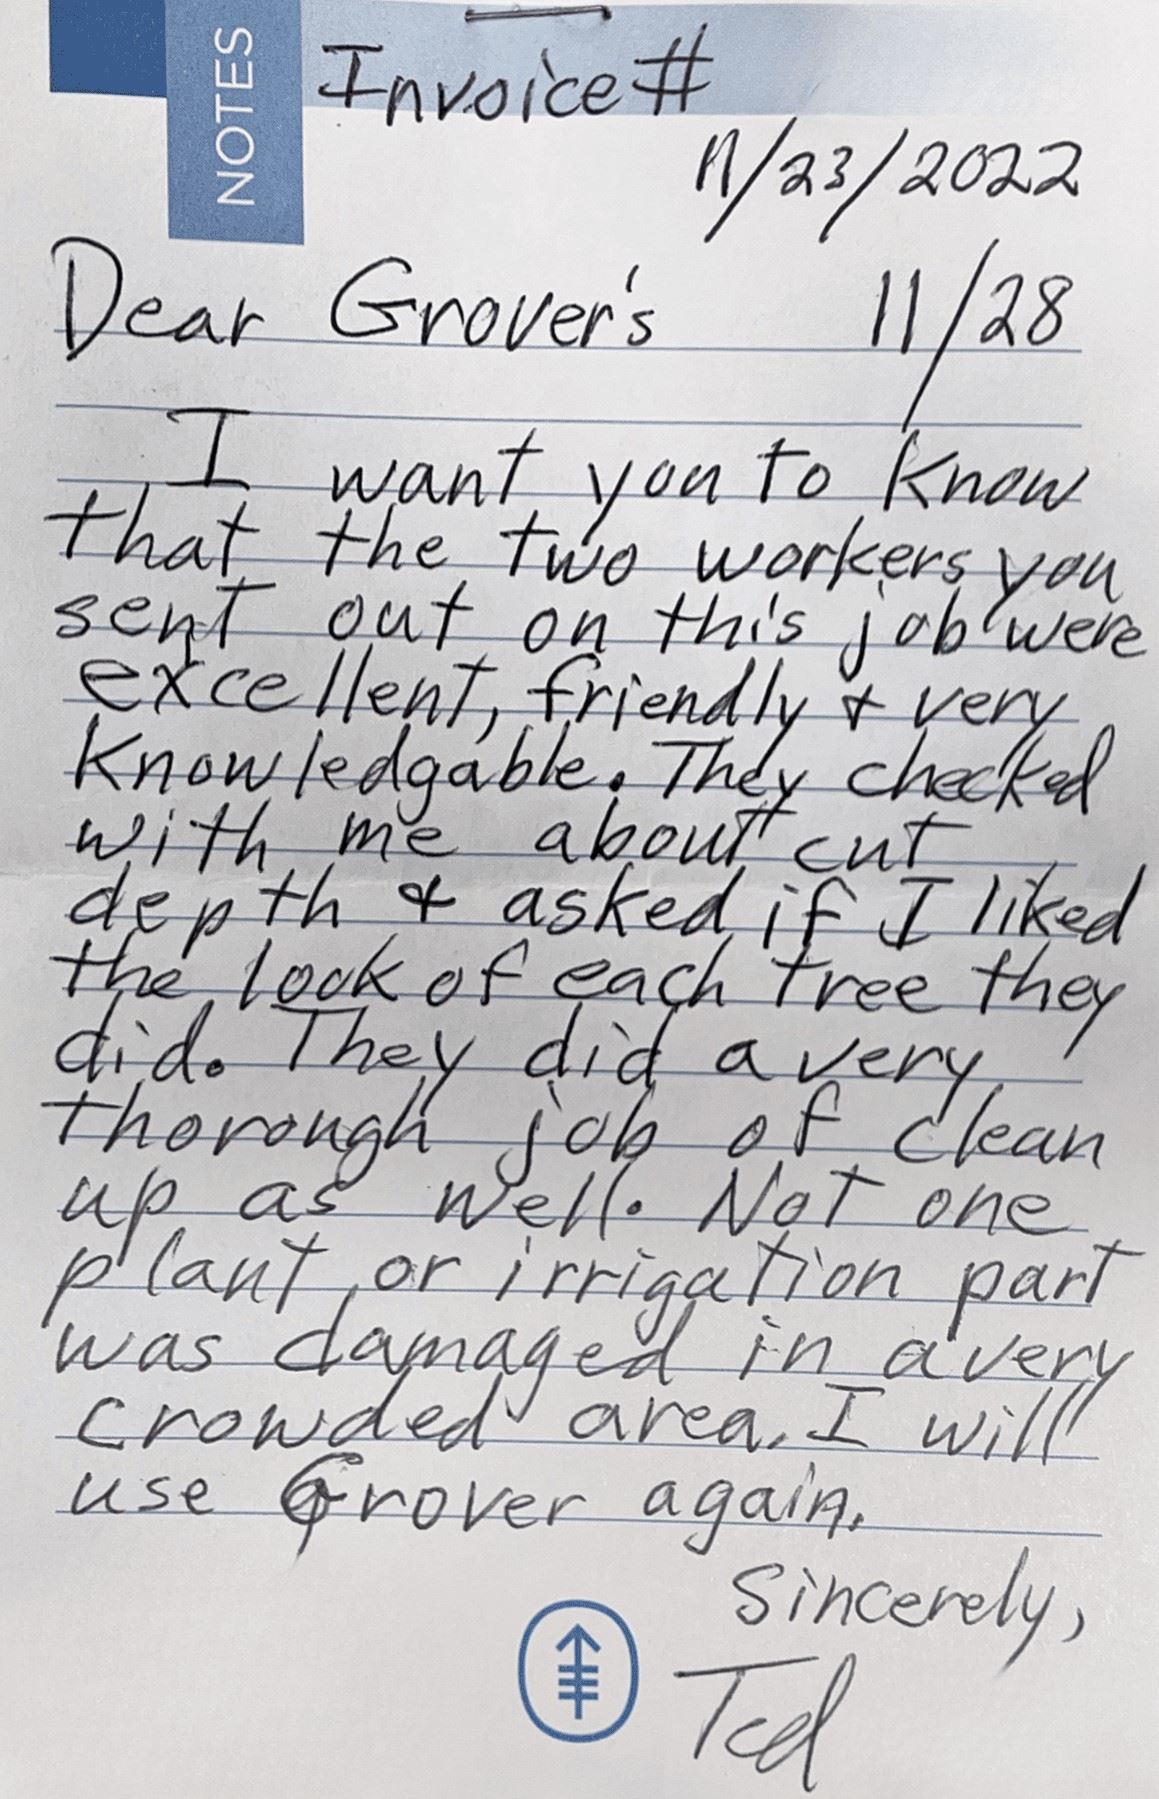 NOTES
Invoice #
11/23/2022
Dear Grover's 11/28
I want you to know
that the two workers you
sent out on this job were
excellent, friendly & very
knowledgable. They checked
with me about cut
depth & asked if I liked
the look of each tree they
did. They did a very
thorough job of clean
up as well. Not one
plant or irrigation part
was damaged in a very
crowded area. I will
use Grover again.
Sincerely,
Ted